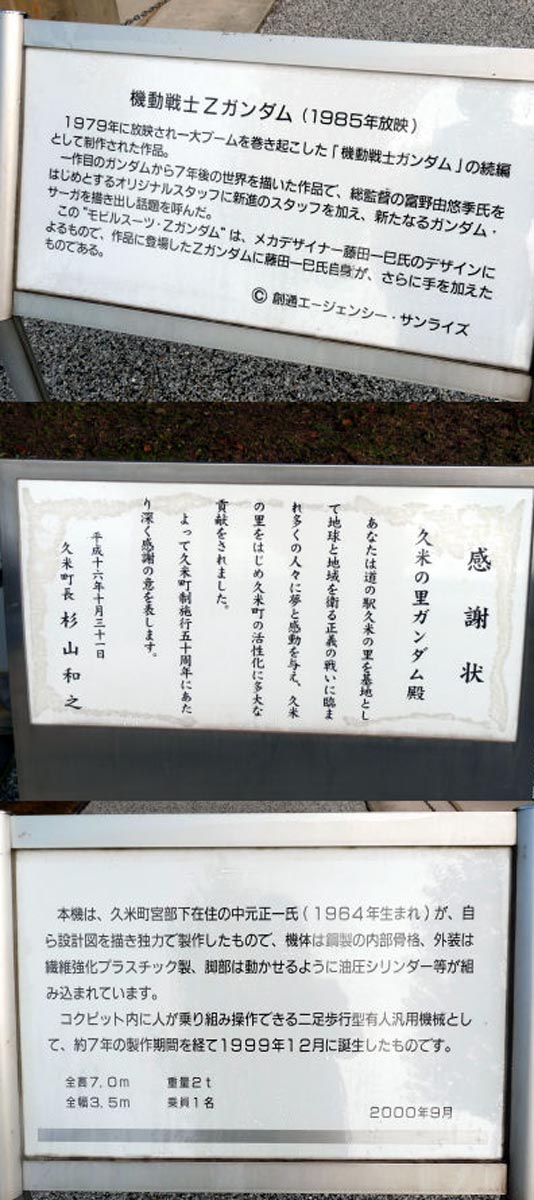 機動戦士Zガンダム（1985年放映）
1979年に放映され一大ブームを巻き起こした「機動戦士ガンダム」の続編
として制作された作品。
一作目のガンダムから7年後の世界を描いた作品で、総監督の富野由悠季氏を
はじめとするオリジナルスタッフに新進のスタッフを加え、新たなるガンダム・
サーガを描き出し話題を呼んだ。
この"モビルスーツ・Zガンダム"は、メカデザイナー藤田一巳氏のデザインに
よるもので、作品に登場したZガンダムに藤田一巳氏自身が、さらに手を加えた
ものである。
© 創通エージェンシー・サンライズ
感謝状
久米の里ガンダム殿
あなたは道の駅久米の里を基地とし
て地球と地域を衛る正義の戦いに臨ま
れ多くの人々に夢と感動を与え、久米
の里をはじめ久米町の活性化に多大な
貢献をされました。
よって久米町制施行五十周年にあた
り深く感謝の意を表します。
平成十六年十月三十一日
久米町長 杉山和之
本機は、久米町宮部下在住の中元正一氏（1964年生まれ）が、自
ら設計図を描き独力で製作したもので、機体は鋼製の内部骨格、外装は
繊維強化プラスチック製、脚部は動かせるように油圧シリンダー等が組
み込まれています。
コクピット内に人が乗り組み操作できる二足歩行型有人汎用機械とし
て、約7年の製作期間を経て1999年12月に誕生したものです。
全高7.0m 重量2t
全幅3.5m 乗員1名
2000年9月